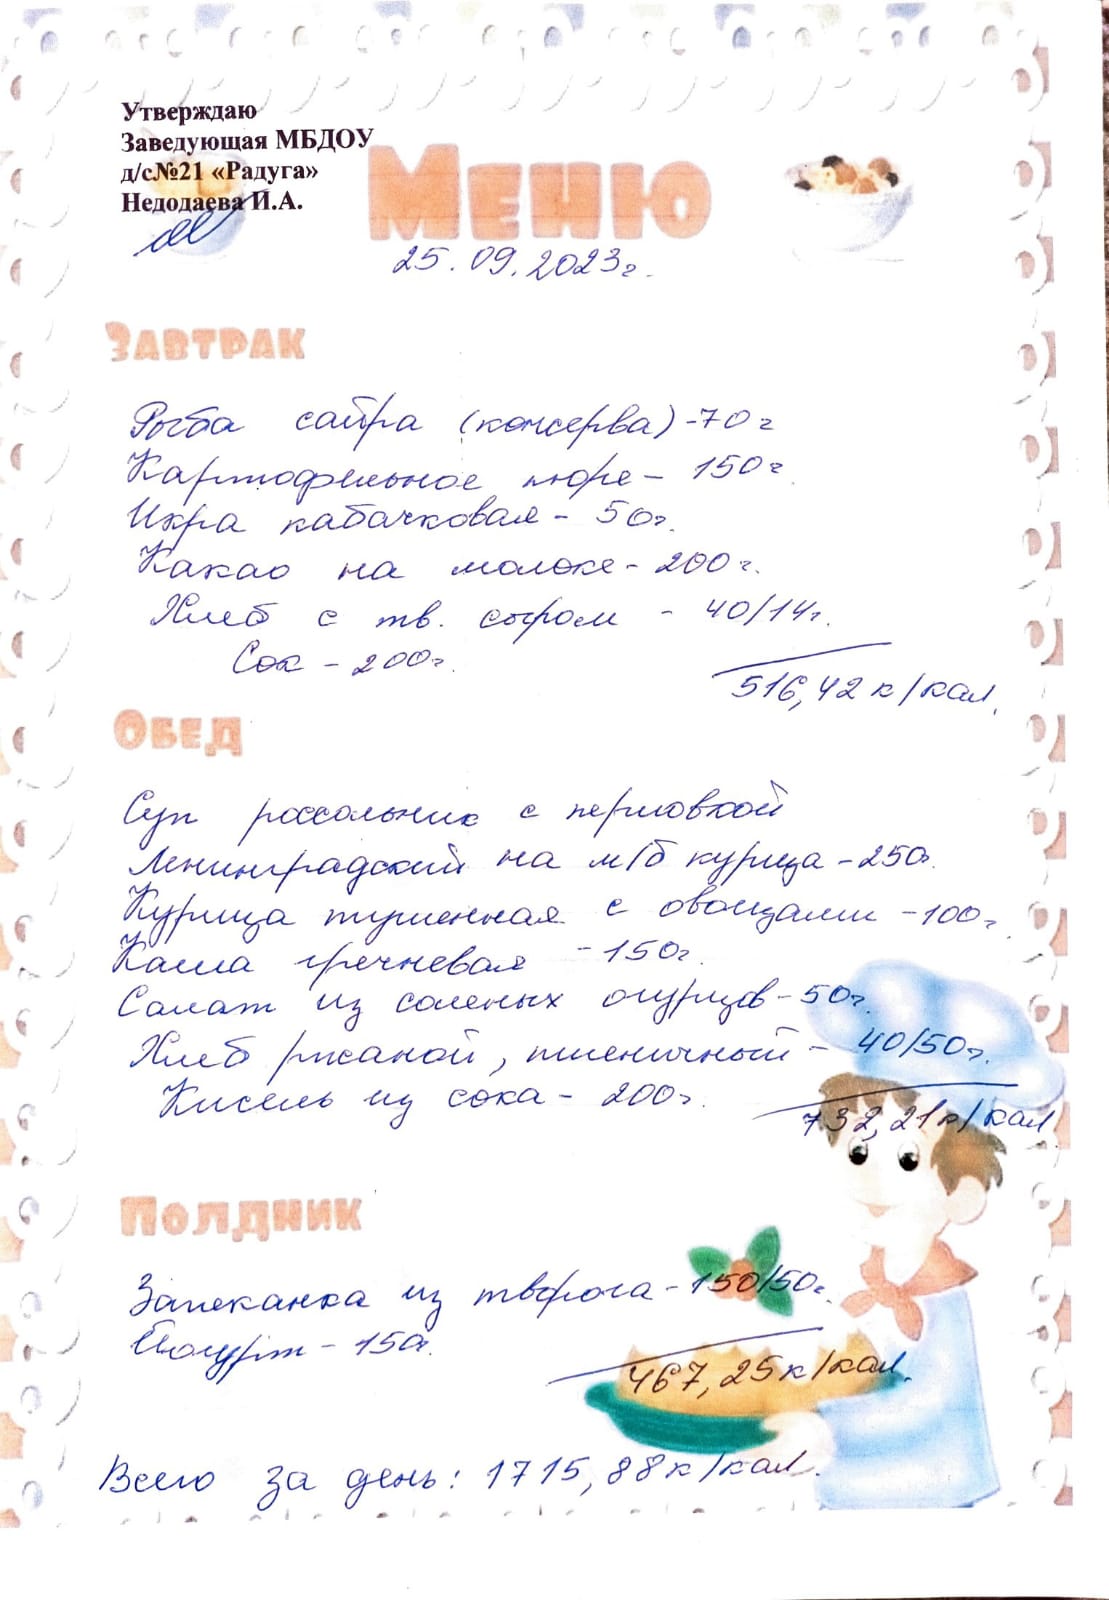 Утверждаю
Заведующая МБДОУ
д/с№21 «Радуга»
Недодаева И.А.
Меню
25.09.2023г.
Завтрак
Рыба сайра (консерва) - 70г
Картофельное пюре - 150г.
Икра кабачковая - 50г.
Какао на молоке - 200г.
Хлеб с тв. сыром - 40/14г.
Сок - 200г.
516,42 к/кал.
Обед
Суп рассольник с перловкой
Ленинградский на м/б курица - 250г.
Курица тушенная с овощами - 100г.
Каша гречневая - 150г.
Салат из соленых огурцов - 50г.
Хлеб ржаной, пшеничный - 40/50г.
Кисель из сока - 200г.
732,21к/кал
Полдник
Запеканка из творога - 150/50г.
Йогурт - 150г.
467,25к/кал.
Всего за день: 1715,88к/кал.